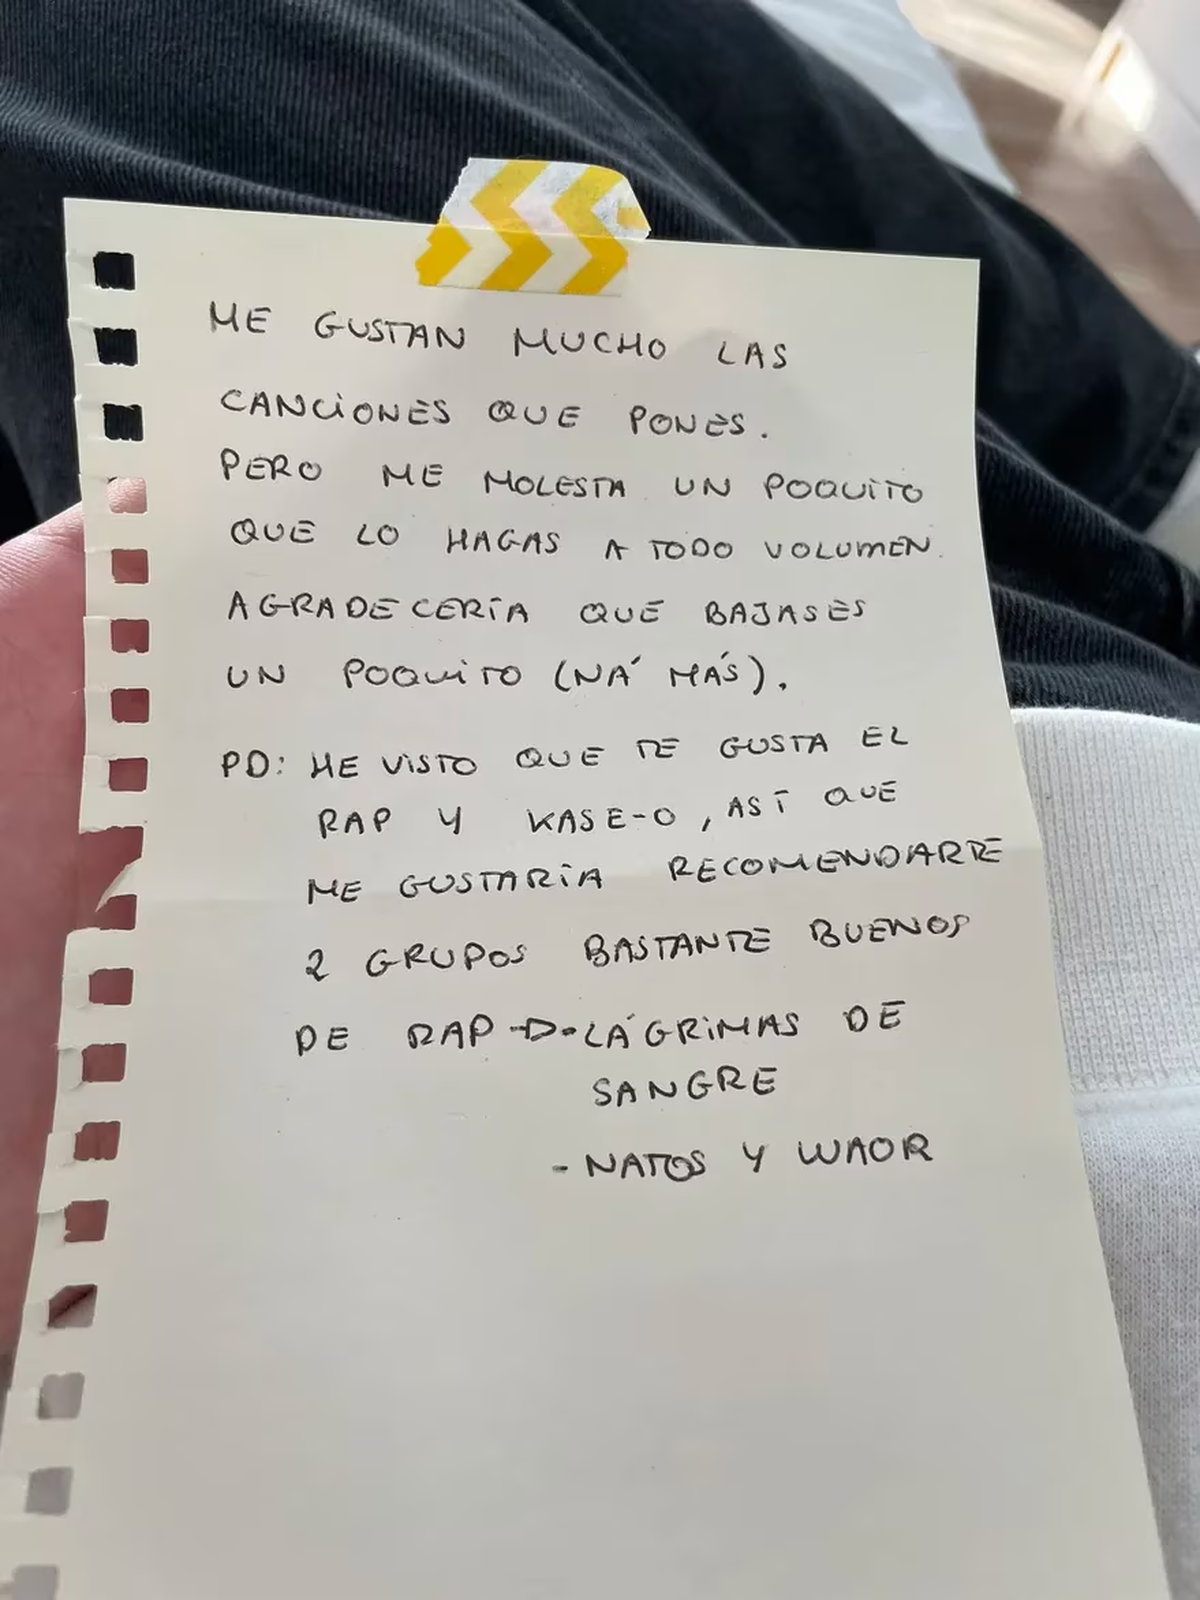 ME GUSTAN MUCHO LAS
CANCIONES QUE PONES.
PERO ME MOLESTA UN POQUITO
QUE LO HAGAS A TODO VOLUMEN.
AGRADECERÍA QUE BAJASES
UN POQUITO (NÁ MÁS).
PD: HE VISTO QUE TE GUSTA EL
RAP Y KASE-O, ASÍ QUE
ME GUSTARÍA RECOMENDARTE
2 GRUPOS BASTANTE BUENOS
DE RAP → - LÁGRIMAS DE
SANGRE
- NATOS Y WAOR